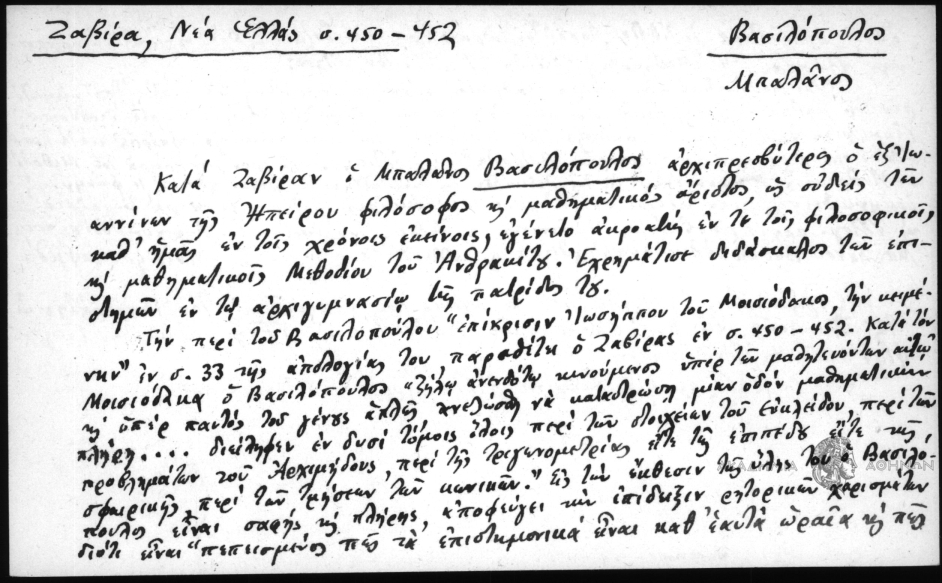 Ζαβίρα, Νέα Ἑλλάς σ. 450 – 452
Βασιλόπουλος
Μπαλᾶνος
Κατά Ζαβίραν ὁ Μπαλᾶνος Βασιλόπουλος ἀρχιπρεσβύτερος ὁ ἐξ Ἰω-
αννίνων τῆς Ἠπείρου φιλόσοφος κ̣ μαθηματικός ἄριστος ὡς οὐδείς τῶν
καθ' ἡμᾶς ἐν τοῖς χρόνοις ἐκείνοις, ἐγένετο ἀκροατής ἐν τε τοῖς φιλοσοφικοῖς
κ̣ μαθηματικοῖς Μεθοδίου τοῦ Ἀνθρακίτου. Ἐχρημάτισε διδάσκαλος τῶν ἐπι-
στημῶν ἐν τῷ ἀρχιγυμνασίῳ τῆς πατρίδος του.
Τήν περί τοῦ Βασιλοπούλου "ἐπίκρισιν Ἰωσήππου τοῦ Μοισιόδακος, τήν κειμέ-
νην" ἐν σ. 33 τῆς ἀπολογίας του παραθέτει ὁ Ζαβίρας ἐν σ. 450 – 452. Κατά τόν
Μοισιόδακα ὁ Βασιλόπουλος "ζήλῳ ἀνενδότῳ κινούμενος ὑπέρ τῶν μαθητευόντων αὐτῷ
κ̣ ὑπέρ παντός τοῦ γένους νά καταστρώσῃ μίαν ὁδόν μαθηματικῶν
πλήρη.... διέλαβεν ἐν δυσί τόμοις ὅλοις περί τῶν στοιχείων τοῦ Εὐκλείδου, περί τῶν
προβλημάτων τοῦ Ἀρχιμήδους, περί τῆς τριγωνομετρίας εἴτε τῆς ἐπιπέδου εἴτε τῆς
σφαιρικῆς, περί τῶν τμήσεων τῶν κωνικῶν." Εἰς τήν ἔκθεσιν τῆς ὕλης του ὁ Βασιλό-
πουλος εἶναι σαφής κ̣ πλήρης, ἀποφεύγει τήν ἐπίδειξιν ρητορικῶν χαρισμάτων
διότι εἶναι "πεπεισμένος πῶς τά ἐπιστημονικά εἶναι καθ' ἑαυτά ὡραῖα κ̣ πῶς
ΑΚΑΔΗΜΙΑ ΑΘΗΝΩΝ